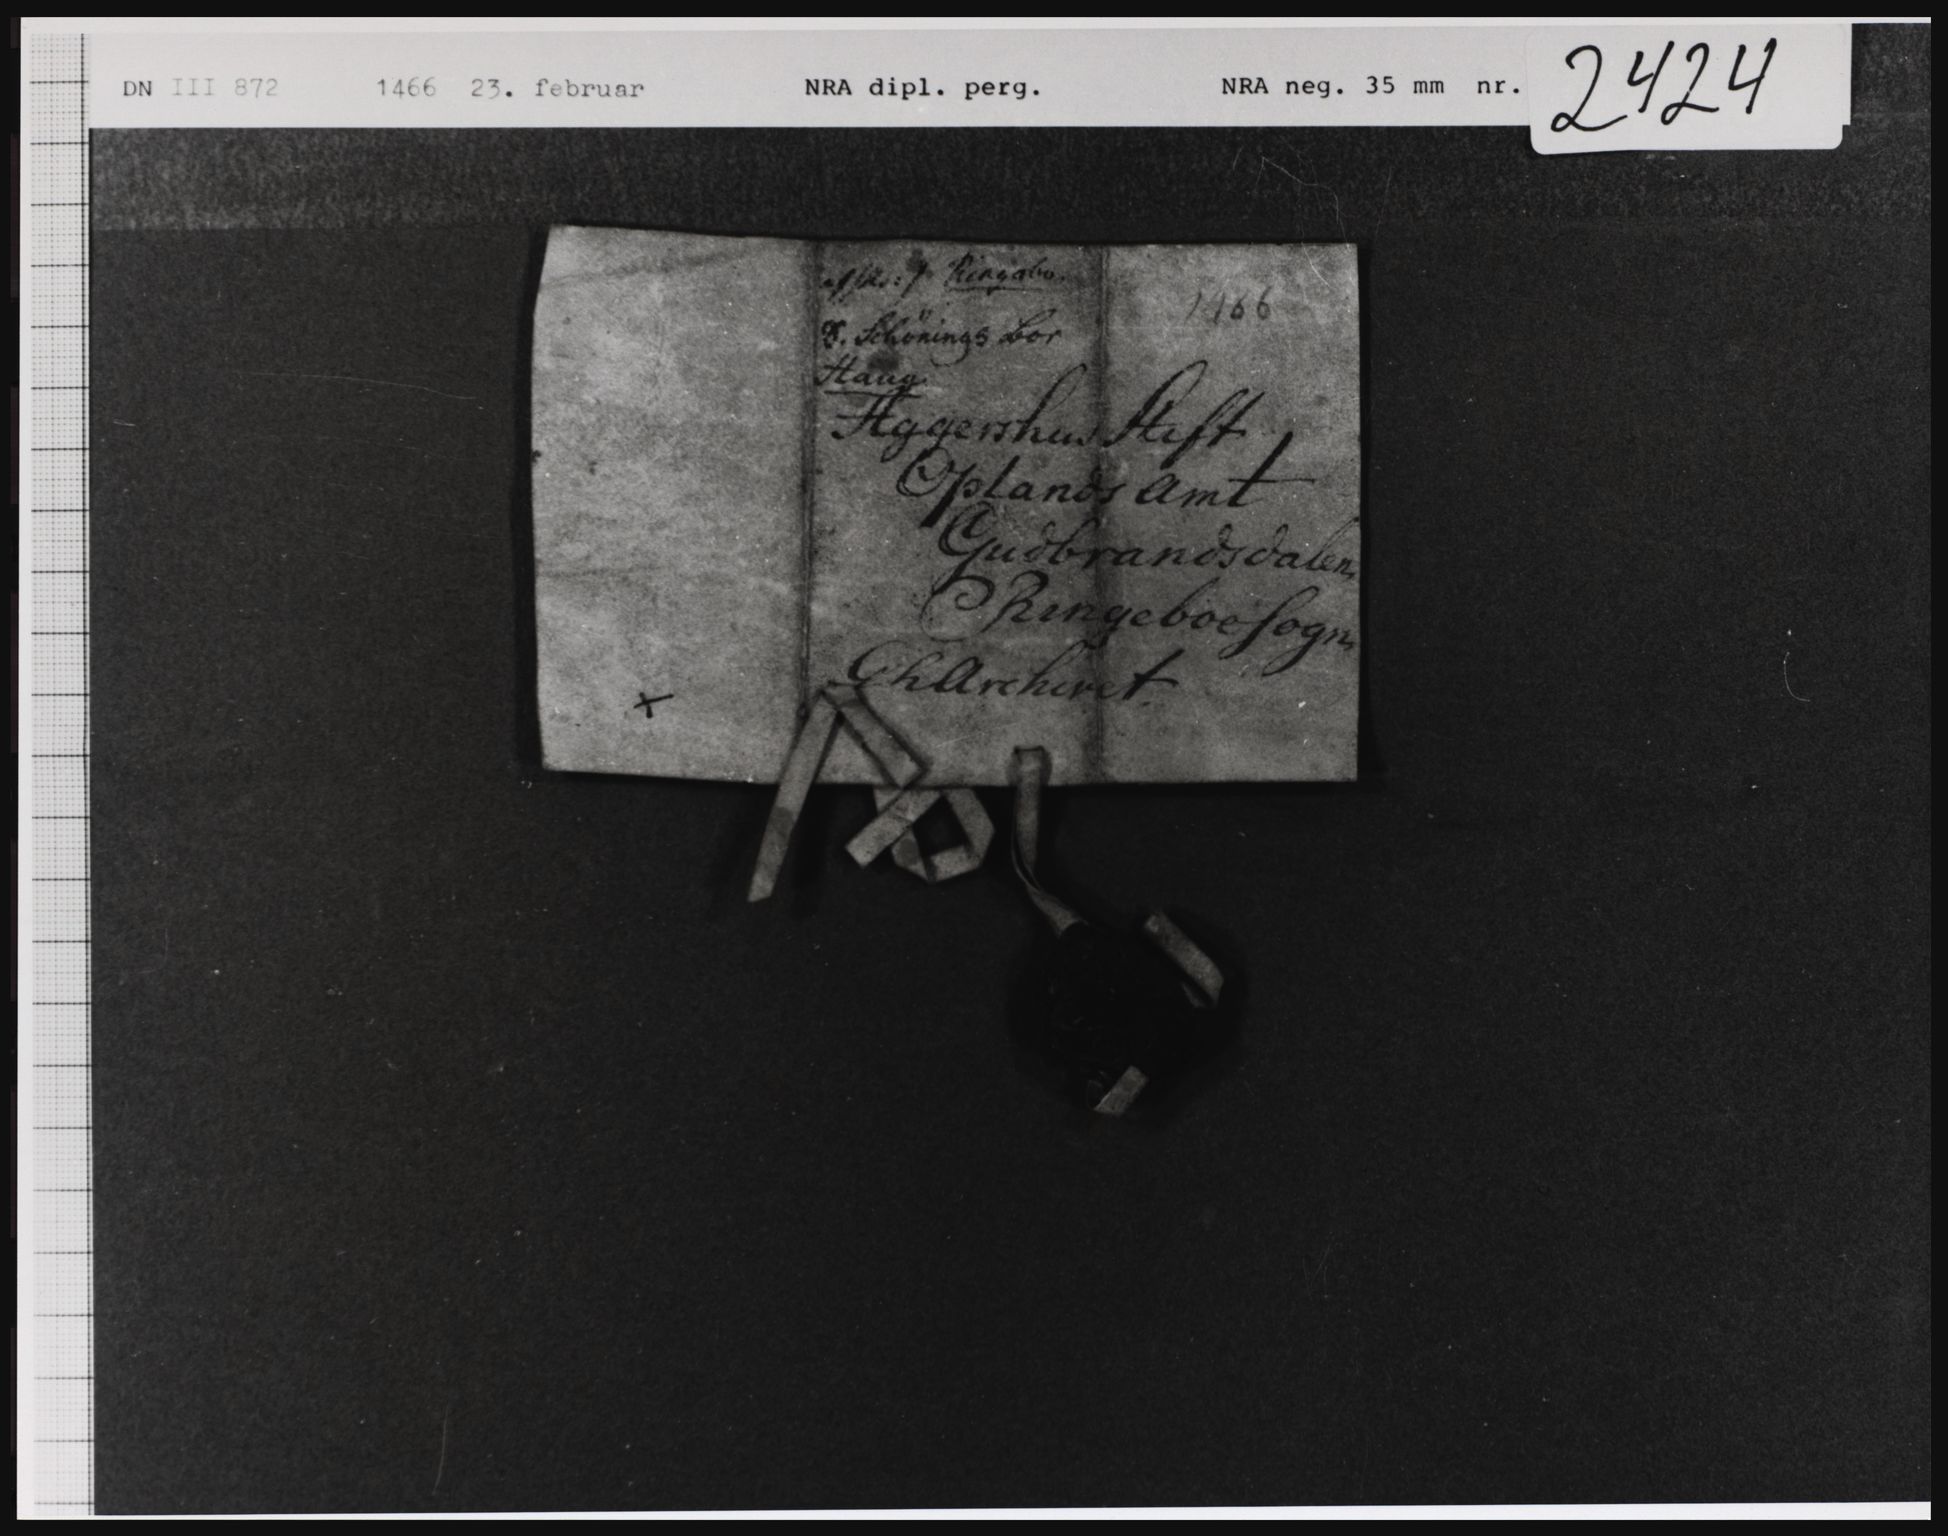 DN III 872 1466 23. februar NRA dipl. perg. NRA neg. 35 mm nr. 2424
Ringabo.
1466
Schönings
Haug
Aggershus Stift
Oplands Amt
Gudbrandsdalen
Ringeboe Sogn
Archivet